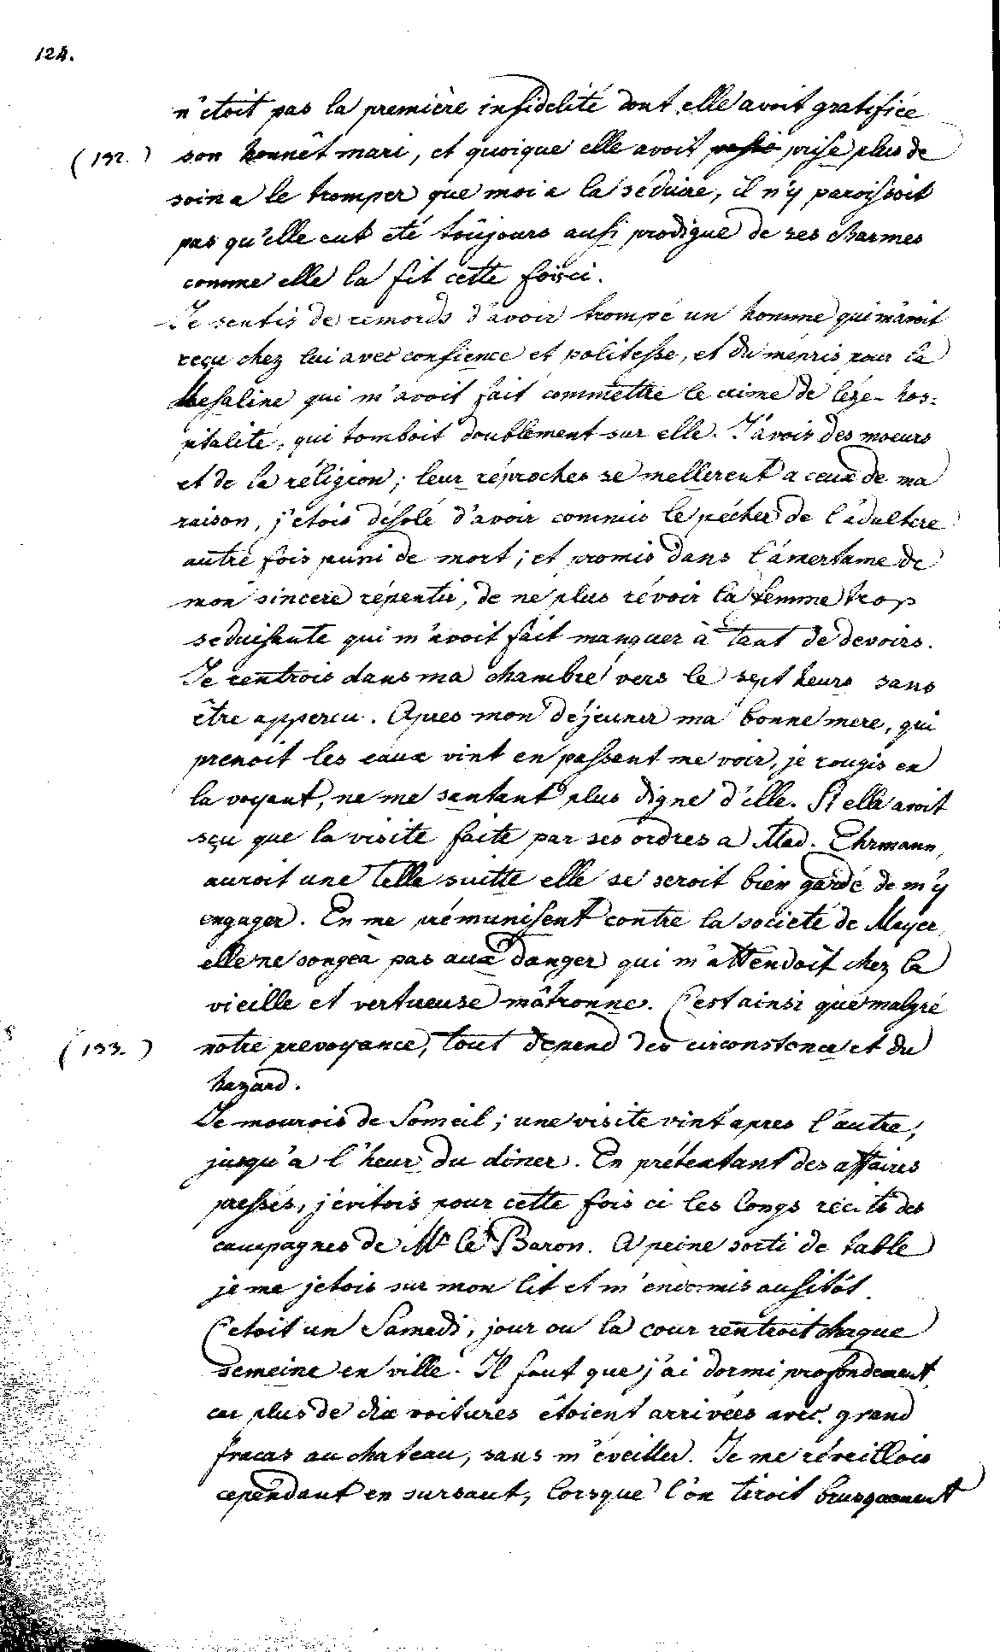 124.
n'etoit pas la première infidelité dont elle avoit gratifiée
(132.) son honnêt mari, et quoique elle avoit prise plus de
soin a le tromper que moi a la séduire, il n'y paroissoit
pas qu'elle eut été toûjours aussi prodigue de ses charmes
comme elle la fit cette foisci.
Je sentis de remords d'avoir trompé un homme qui m'avoit
reçu chez lui avec confience et politesse, et du mépris pour la
Messaline qui m'avoit fait commettre le crime de léze-hos=
pitalité, qui tomboit doublement sur elle. J'avois des moeurs
et de la réligion; leur réproches se mellerent a ceux de ma
raison, j'etois désolé d'avoir commis le pécher de l'adultere
autre fois puni de mort; et promis dans l'amertume de
mon sincere répentir, de ne plus révoir la femme trop
seduisante qui m'avoit fait manquer à tant de devoirs.
Je rentrois dans ma chambre vers le sept heurs sans
être apperçu. Apres mon déjeuner ma bonne mere, qui
prenoit les eaux vint en passent me voir, je rougis en
la voyant, ne me sentant plus digne d'elle. Si elle avoit
sçu que la visite faite par ses ordres a Mad. Ehrmann,
auroit une telle suitte elle se seroit bien gardé de m'y
engager. En me prémunisent contre la societé de Mayer,
elle ne songea pas aux danger qui m'attendoit chez la
vieille et vertueuse mâtronne. C'est ainsi que malgré
(133.) notre prevoyance, tout depend des circonstence et du
hazard.
Je mourois de Someil; une visite vint apres l'autre,
jusqu'a l'heur du diner. En prétextant des affaires
pressés, j'evitois pour cette fois ci les longs recits des
campagnes de Mr le Baron. A peine sorti de table
je me jetois sur mon lit et m'endormis ausitôt.
C'etoit un Samedi, jour ou la cour rentroit chaque
semeine en ville. Il faut que j'ai dormi profondement,
car plus de dix voitures étoient arrivées avec grand
fracas au chateau, sans m'éveiller. Je me réveillois
cependant en sursaut, lorsque l'on tiroit brusquement